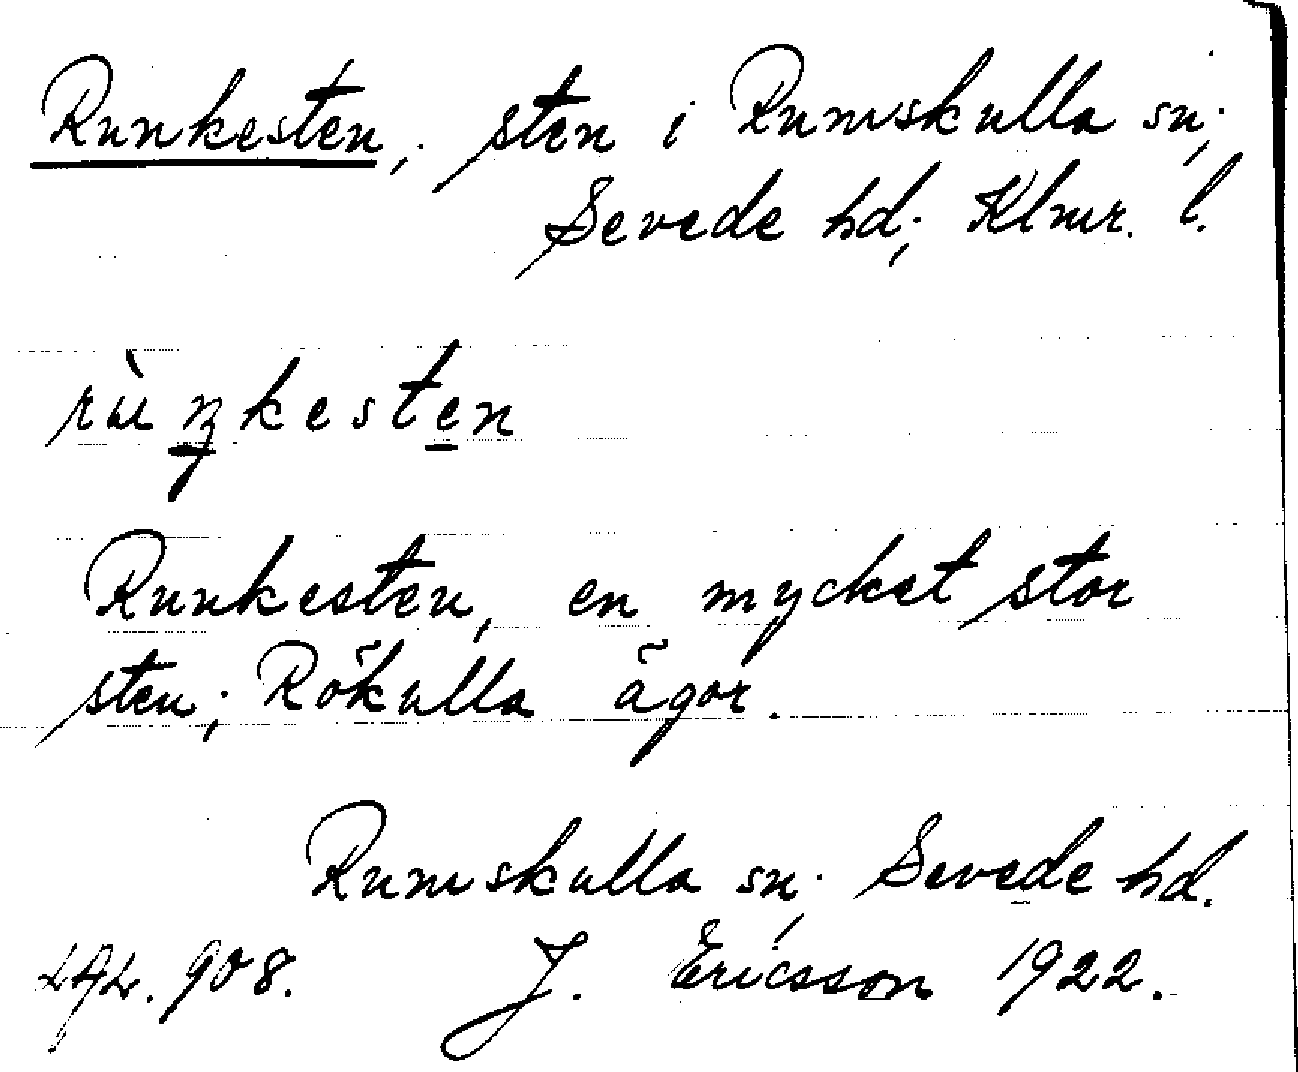 Runkesten, sten i Rumskulla sn;
Sevede hd; Klmr. l.
rùŋkesten
Runkesten, en mycket stor
sten; Rökulla ägor.
Rumskulla sn; Sevede hd.
908. J. Ericsson 1922.